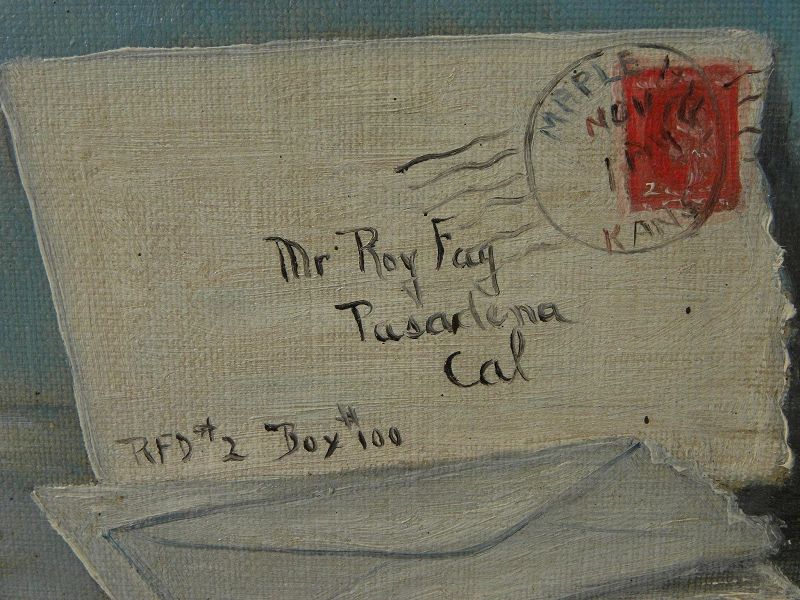 MAPLE
NOV
1
KANS
2
Mr Roy Fay
Pasadena
Cal
RFD #2 Box #100